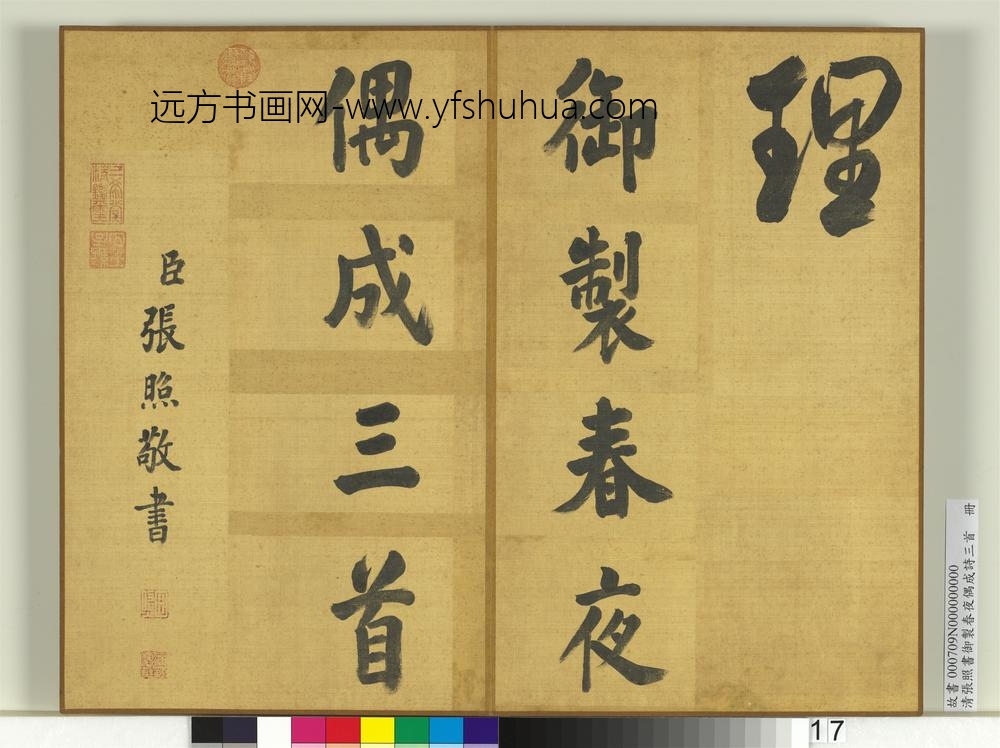 理
御製春夜
偶成三首
臣張照敬書
远方书画网-www.yfshuhua.com
故書000709N000000000
清張照書御製春夜偶成詩三首　冊
17